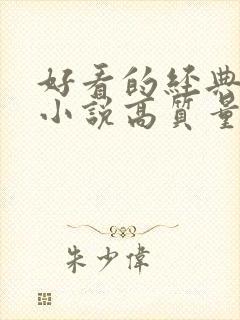 好看的經典
小說高質量
朱少偉